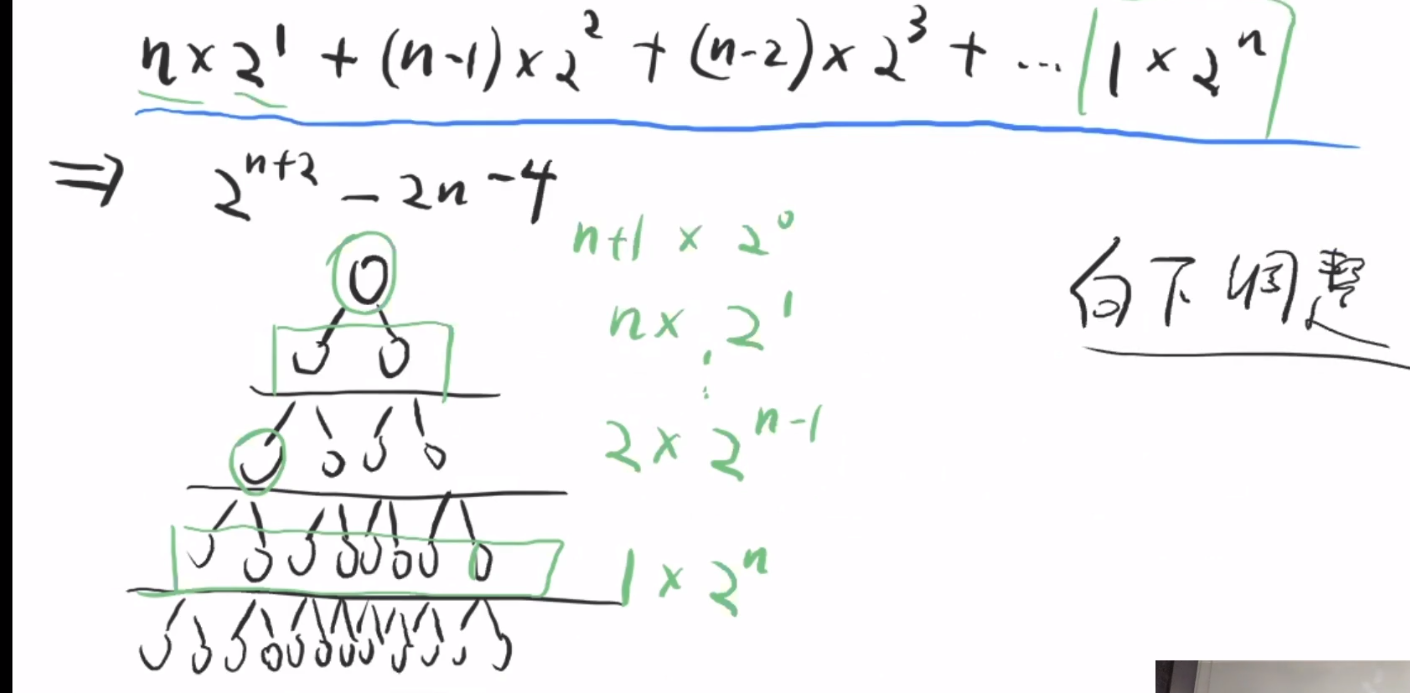 n × 2¹ + (n-1) × 2² + (n-2) × 2³ + ... 1 × 2ⁿ
⇒ 2ⁿ⁺² - 2n - 4
n+1 × 2⁰
n × 2¹
⋮
2 × 2ⁿ⁻¹
1 × 2ⁿ
向下调整